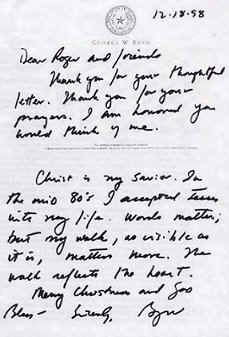 12-18-98
GEORGE W. BUSH
Dear Roger and friends
Thank you for your thoughtful
letter. Thank you for your
prayers. I am honored you
would think of me.
Christ is my savior. In
the mid 80's I accepted Jesus
into my life. Words matter;
but my walk, as visible as
it is, matters more. The
walk reflects the heart.
Merry Christmas and God
Bless - Sincerely,